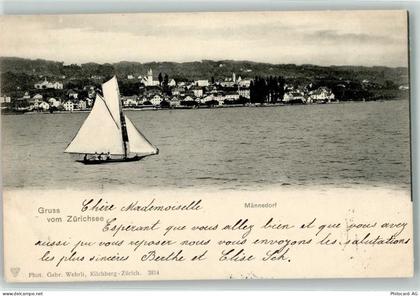 Gruss
vom Zürichsee
Männedorf
Chère Mademoiselle
Esperant que vous allez bien et que vous avez
aussi pu vous reposer nous vous envoyons les salutations
les plus sincères Berthe et Elise Sch.
Phot. Gebr. Wehrli, Kilchberg-Zürich. 2814
www.picclick-ARCHIV.de